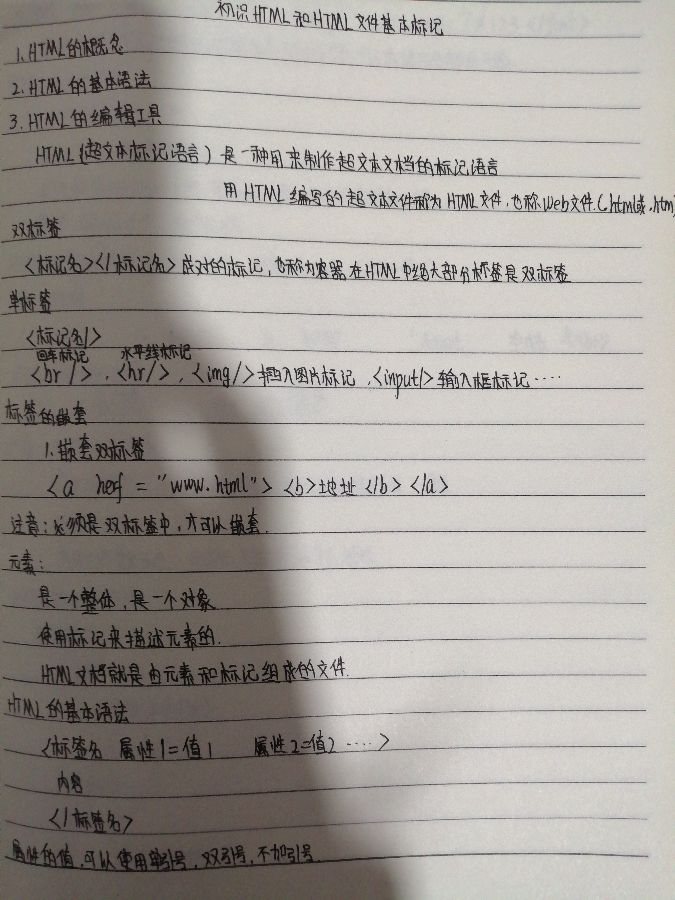 初识HTML和HTML文件基本标记
1.HTML的概念
2.HTML的基本语法
3.HTML的编辑工具
HTML(超文本标记语言)是一种用来制作超文本文档的标记语言
用HTML编写的超文本文件称为HTML文件,也称web文件(.html或.htm)
双标签
<标记名></标记名>成对的标记,也称为容器 在HTML中绝大部分标签是双标签
单标签
<标记名/>
回车标记 水平线标记
<br/>、<hr/>、<img/>插入图片标记、<input/>输入框标记····
标签的嵌套
1.嵌套双标签
<a herf = "www.html"> <b>地址</b> </a>
注意:必须是双标签中,才可以嵌套.
元素:
是一个整体,是一个对象
使用标记来描述元素的.
HTML文档就是由元素和标记组成的文件.
HTML的基本语法
<标签名 属性1=值1 属性2=值2 ····>
内容
</标签名>
属性的值,可以使用单引号,双引号,不加引号.